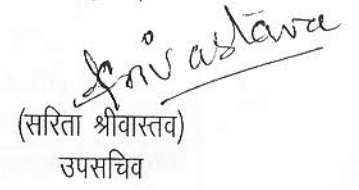 Srivastava
(सरिता श्रीवास्तव)
उपसचिव